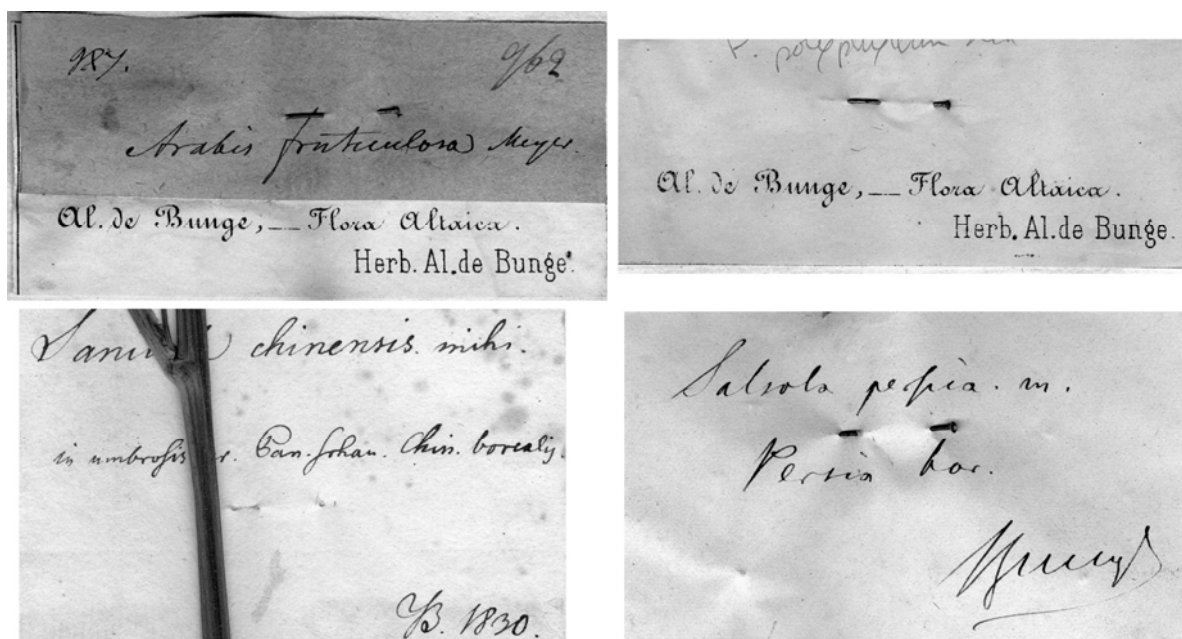 987. 962
Arabis fruticulosa Meyer.
Al. de Bunge, — Flora Altaica.
Herb. Al. de Bunge.
P.
Al. de Bunge, — Flora Altaica.
Herb. Al. de Bunge.
chinensis. mihi.
in umbrosis Pan-schan. Chin. borealis.
B. 1830.
Salsola persica. m.
Persia bor.
Bunge